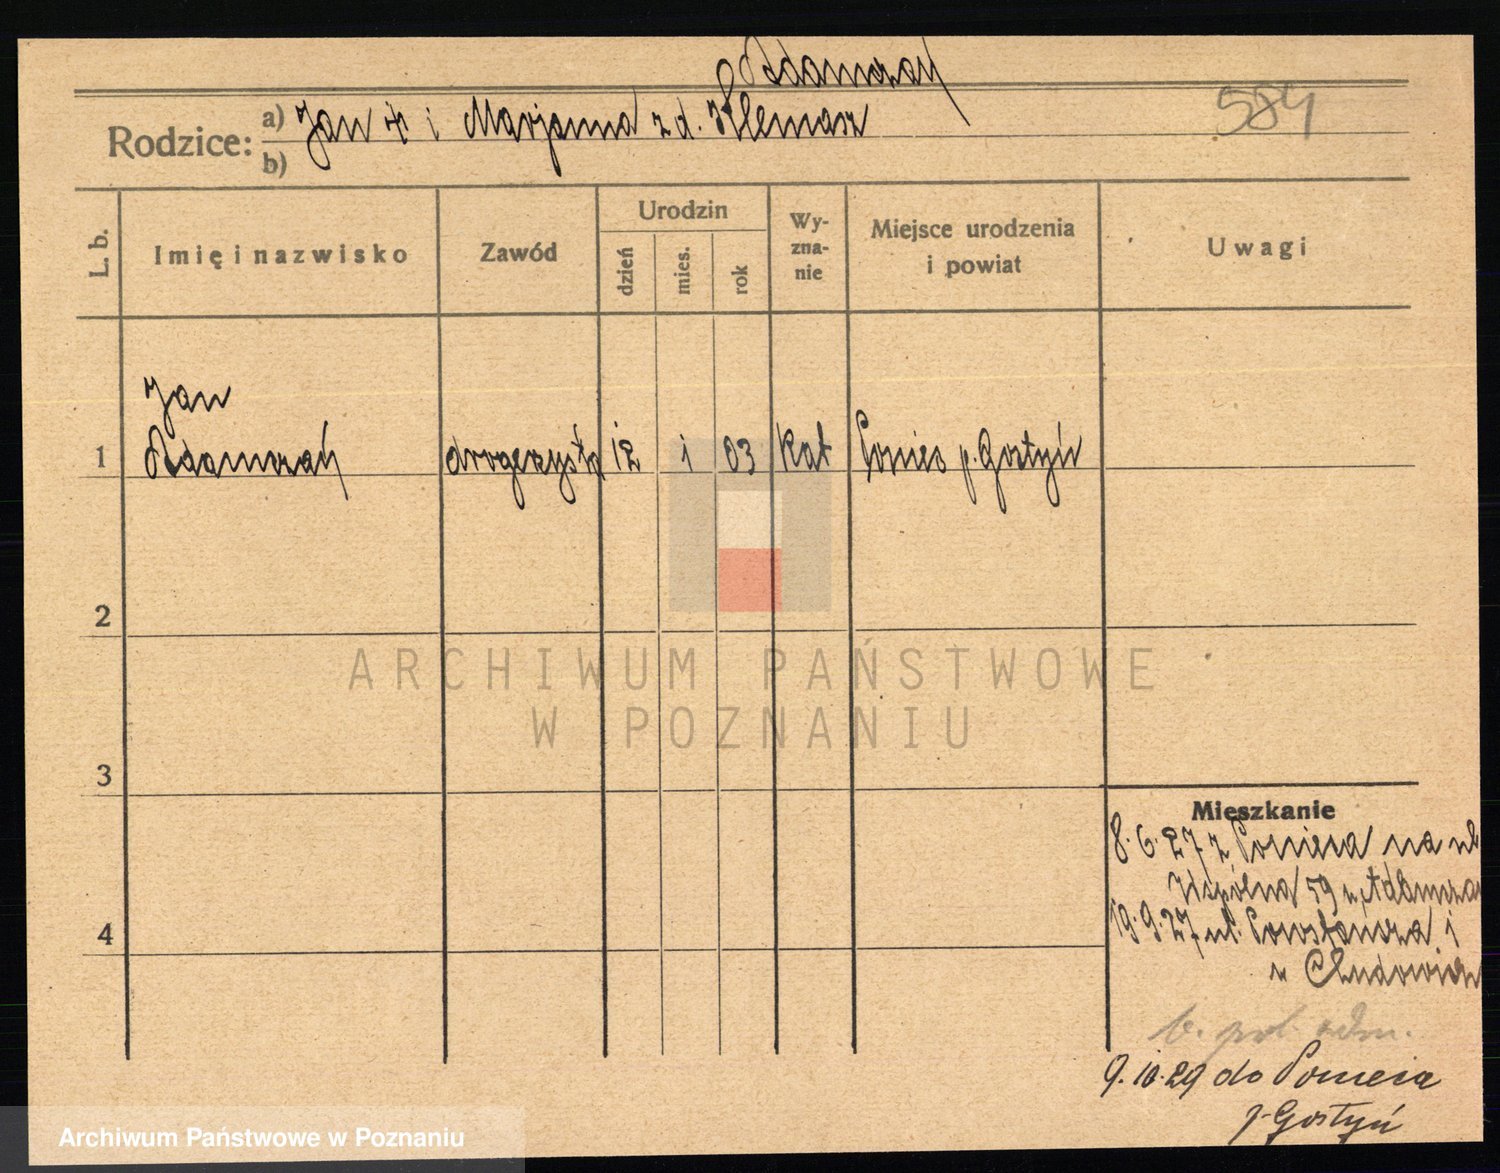 Adamczak
584
Rodzice: a) Jan i Marjanna z d. Klemasz
b)
L. b.
Imię i nazwisko
Zawód
Urodzin
dzień
mies.
rok
Wy-
zna-
nie
Miejsce urodzenia
i powiat
Uwagi
Jan
1 Adamczak drogerzysta 12 i 03 kat Poniec p. Gostyń
2
3
4
ARCHIWUM PAŃSTWOWE
W POZNANIU
Mieszkanie
8.6.27 z Ponieca na ul
Wspólna 59 u Adamcza
19.9.27 ul.
u
9.10.29 do Ponieca
p. Gostyń
Archiwum Państwowe w Poznaniu